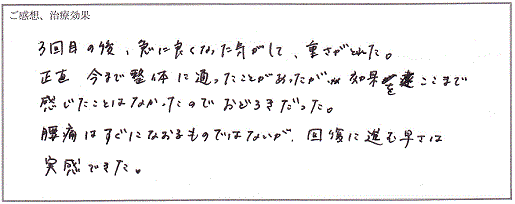 ご感想、治療効果
3回目の後、急に良くなった気がして、重さがとれた。
正直 今まで整体に通ったことがあったが 効果をここまで
感じたことはなかったのでおどろきだった。
腰痛はすぐになおるものではないが、回復に進む早さは
実感できた。